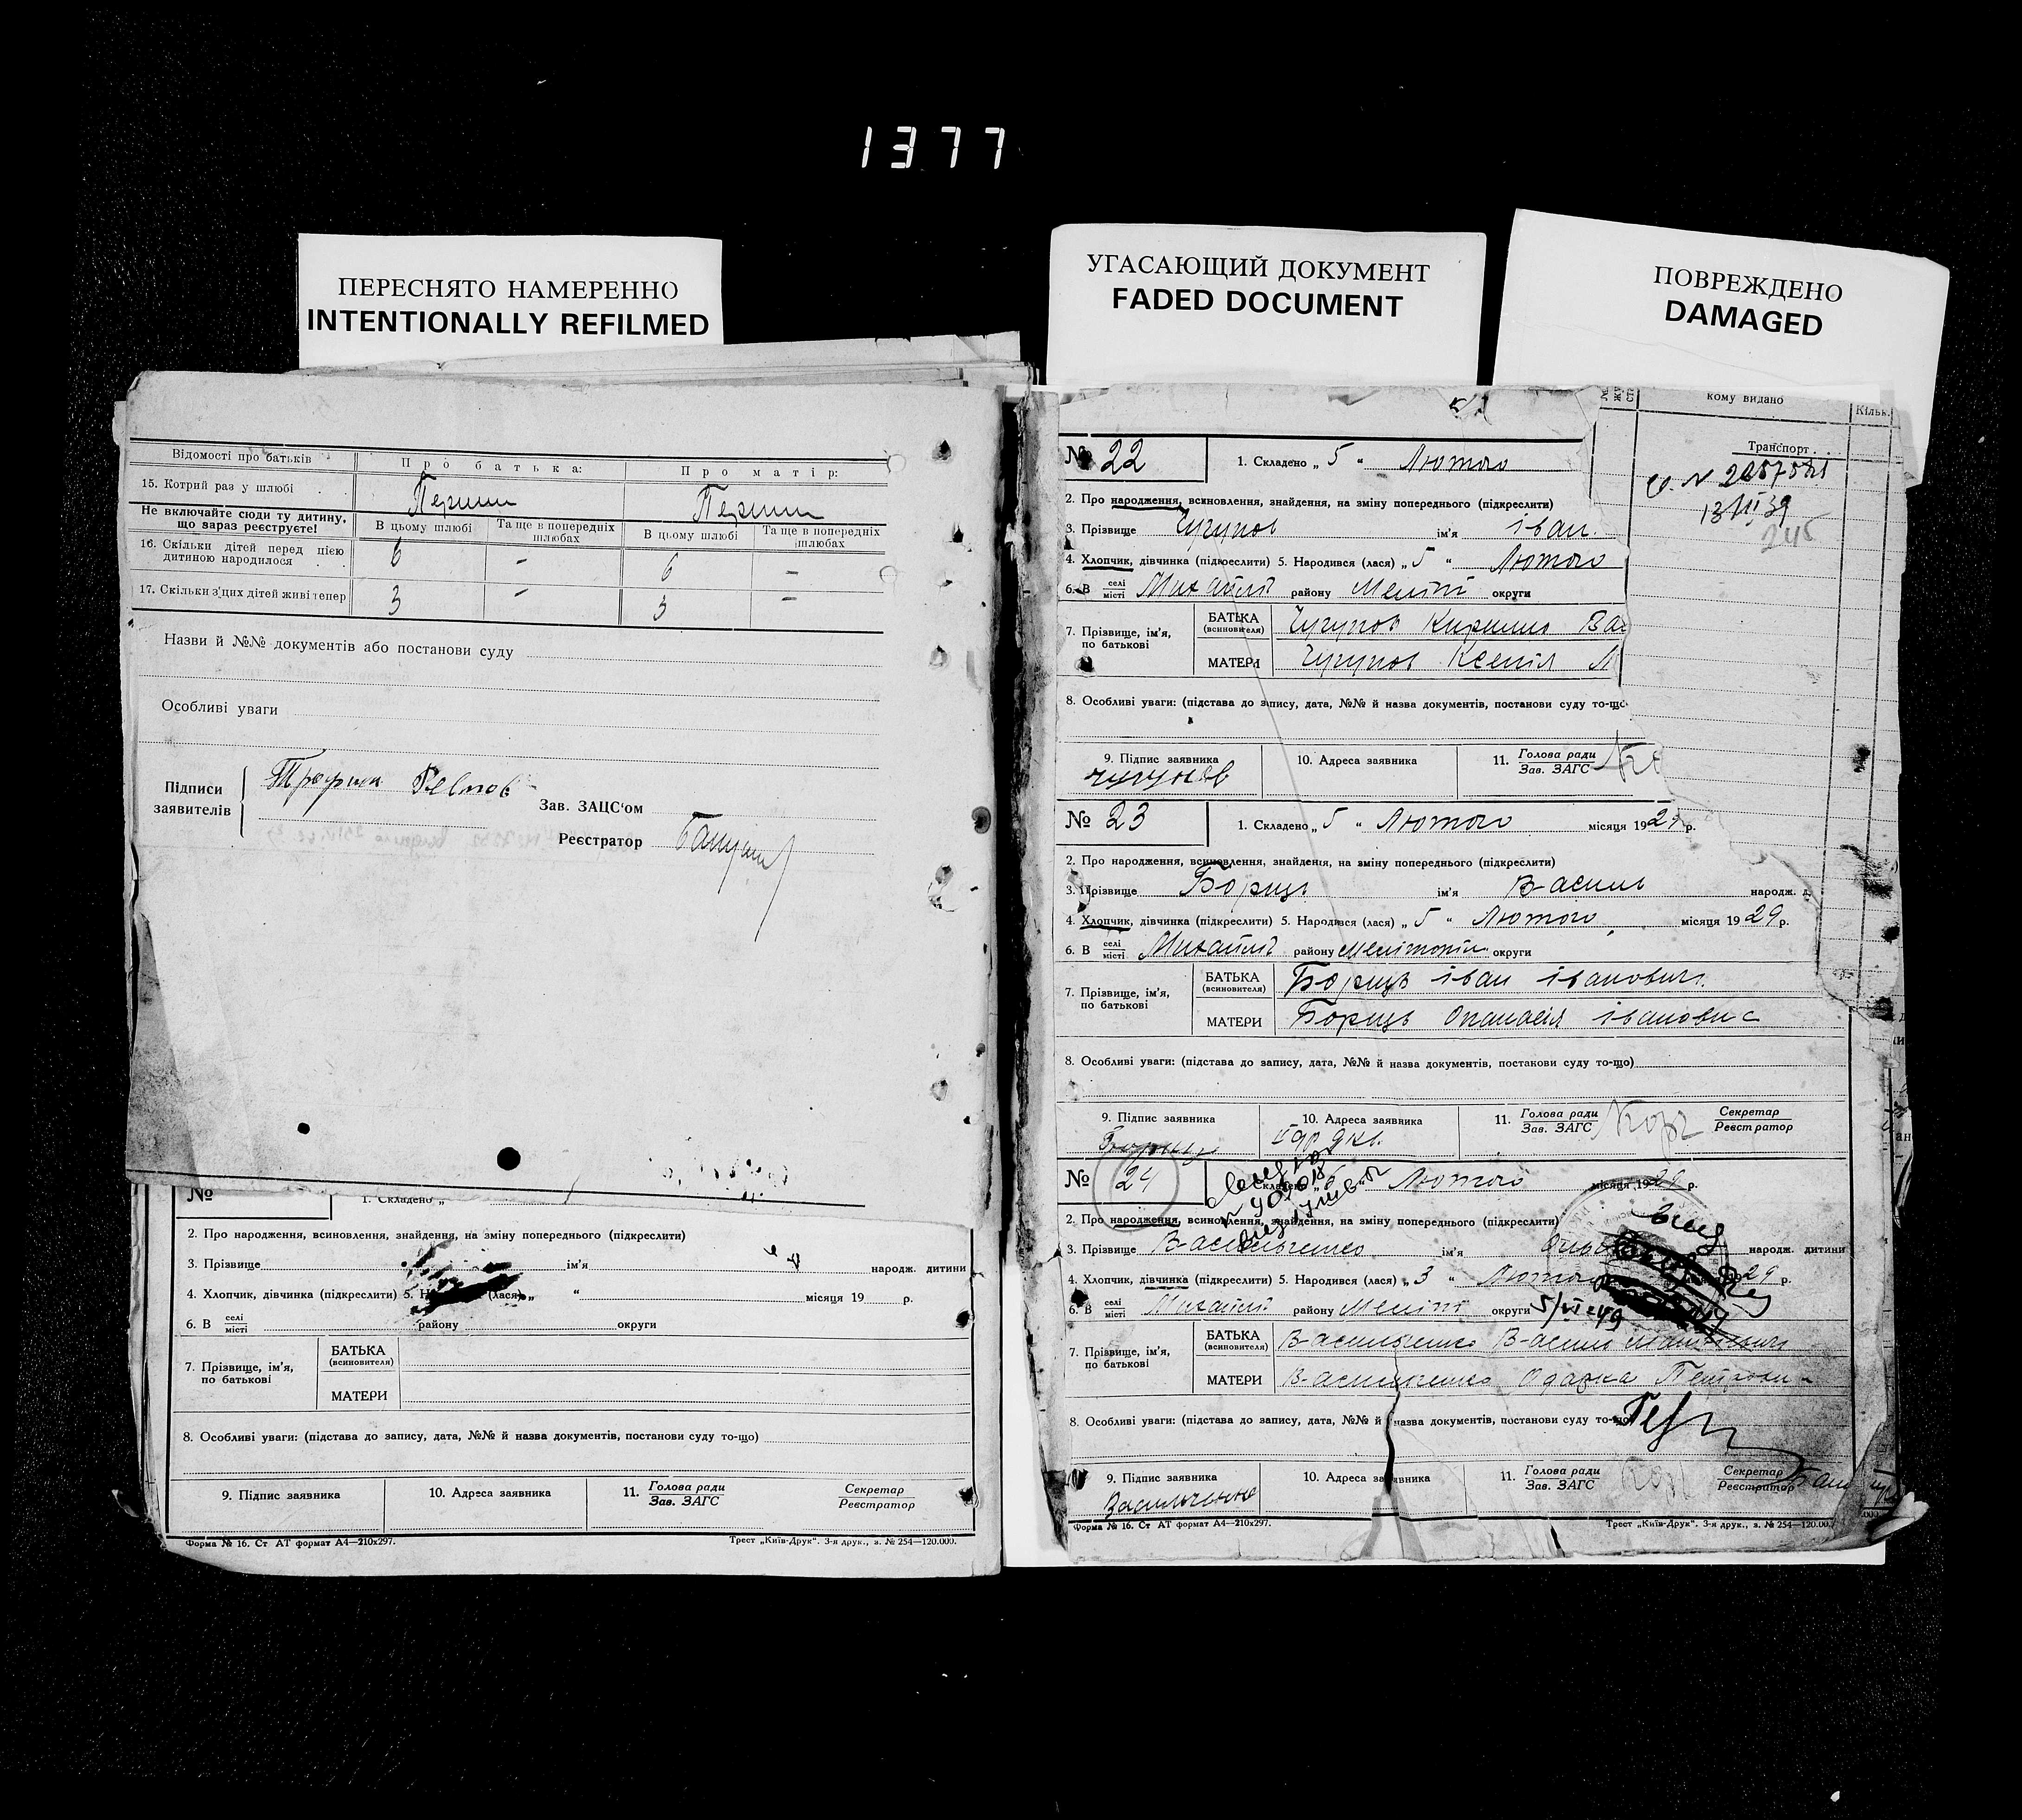 1377
ПЕРЕСНЯТО НАМЕРЕННО
INTENTIONALLY REFILMED
УГАСАЮЩИЙ ДОКУМЕНТ
FADED DOCUMENT
ПОВРЕЖДЕНО
DAMAGED
Відомості про батьків Про батька: Про матір:
15. Котрий раз у шлюбі
Не включайте сюди ту дитину, що зараз реєструєте! В цьому шлюбі Та ще в попередніх шлюбах В цьому шлюбі Та ще в попередніх шлюбах
16. Скільки дітей перед цією дитиною народилося 6 - 6 -
17. Скільки з цих дітей живі тепер 3 - 3 -
Назви й №№ документів або постанови суду
Особливі уваги
Підписи заявителів
Зав. ЗАЦС'ом
Реєстратор
№ 1. Складено „
2. Про народження, всиновлення, знайдення, на зміну попереднього (підкреслити)
3. Прізвище ім'я народж. дитини
4. Хлопчик, дівчинка (підкреслити) 5. (лася) „ “ місяця 19 р.
6. В селі місті району округи
7. Прізвище, ім'я, по батькові БАТЬКА (всиновителя)
МАТЕРИ
8. Особливі уваги: (підстава до запису, дата, №№ й назва документів, постанови суду то-що)
9. Підпис заявника 10. Адреса заявника 11. Голова ради Зав. ЗАГС Секретар Реєстратор
Форма № 16. Ст АТ формат А4—210х297. Трест „Київ-Друк“. 3-я друк., з. № 254—120.000.
кому видано Кільк.
Транспорт
№ 22 1. Складено „ 5 “ Лютого
2. Про народження, всиновлення, знайдення, на зміну попереднього (підкреслити)
3. Прізвище Чугунов ім'я іван
4. Хлопчик, дівчинка (підкреслити) 5. Народився (лася) „ 5 “ Лютого
6. В селі місті Михайлів району Меліт округи
7. Прізвище, ім'я, по батькові БАТЬКА (всиновителя) Чугунов Кирило
МАТЕРИ Чугунов Ксенія
8. Особливі уваги: (підстава до запису, дата, №№ й назва документів, постанови суду то-що
9. Підпис заявника 10. Адреса заявника 11. Голова ради Зав. ЗАГС
Чугунов
№ 23 1. Складено „ 5 “ Лютого місяця 1929 р.
2. Про народження, всиновлення, знайдення, на зміну попереднього (підкреслити)
3. Прізвище Борщь ім'я Василь народж. д
4. Хлопчик, дівчинка (підкреслити) 5. Народився (лася) „ 5 “ Лютого місяця 1929 р.
6. В селі місті Михайлів району округи
7. Прізвище, ім'я, по батькові БАТЬКА (всиновителя) Борщь іван іванович
МАТЕРИ Борщь
8. Особливі уваги: (підстава до запису, дата, №№ й назва документів, постанови суду то-що)
9. Підпис заявника 10. Адреса заявника 11. Голова ради Зав. ЗАГС Секретар Реєстратор
№ 24 Складено „ 6 “ Лютого місяця 1929 р.
2. Про народження, всиновлення, знайдення, на зміну попереднього (підкреслити)
3. Прізвище Васильченко ім'я народж. дитини
4. Хлопчик, дівчинка (підкреслити) 5. Народився (лася) „ 3 “ Лютого 29 р.
6. В селі місті Михайлів району Меліт округи
7. Прізвище, ім'я, по батькові БАТЬКА (всиновителя) Васильченко Василь
МАТЕРИ Васильченко Одарка
8. Особливі уваги: (підстава до запису, дата, №№ й назва документів, постанови суду то-що
9. Підпис заявника 10. Адреса заявника 11. Голова ради Зав. ЗАГС Секретар Реєстратор
Васильченко
Форма № 16. Ст АТ формат А4—210х297. Трест „Київ-Друк“. 3-я друк., з. № 254—120.00